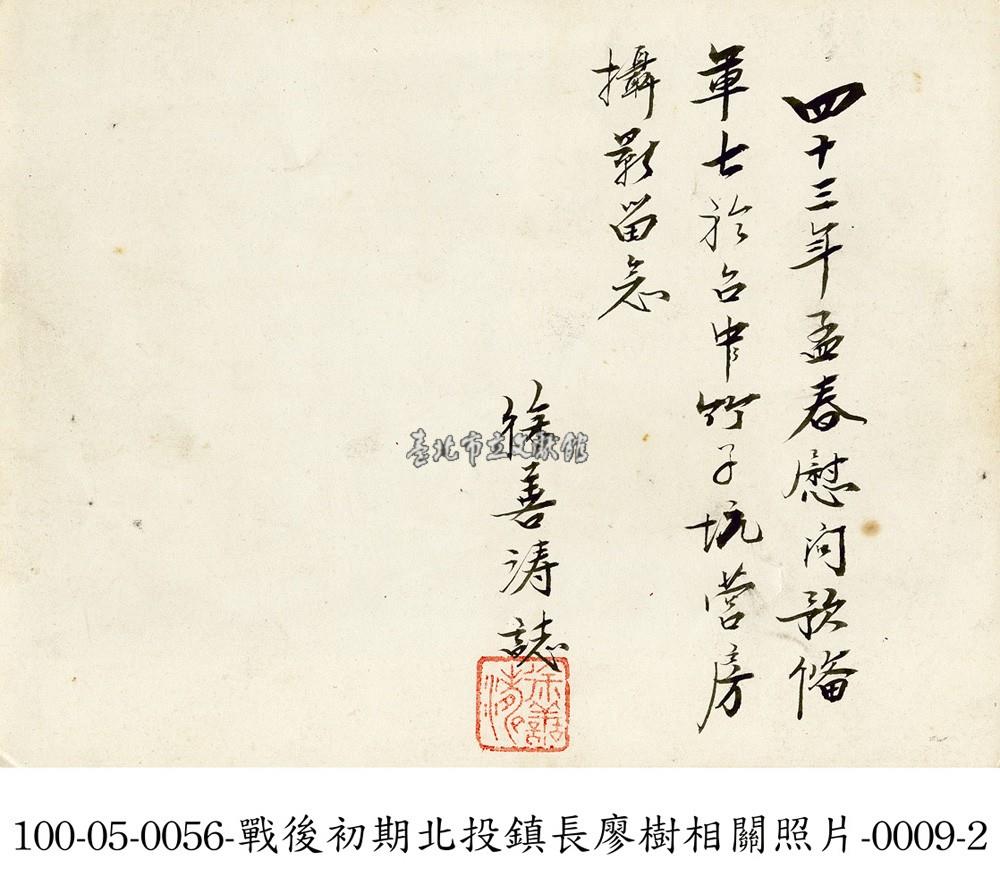 四十三年孟春慰問預俻
軍士於台中竹子坑营房
攝影留念
徐善涛誌
臺北市立文獻館
100-05-0056-戰後初期北投鎮長廖樹相關照片-0009-2